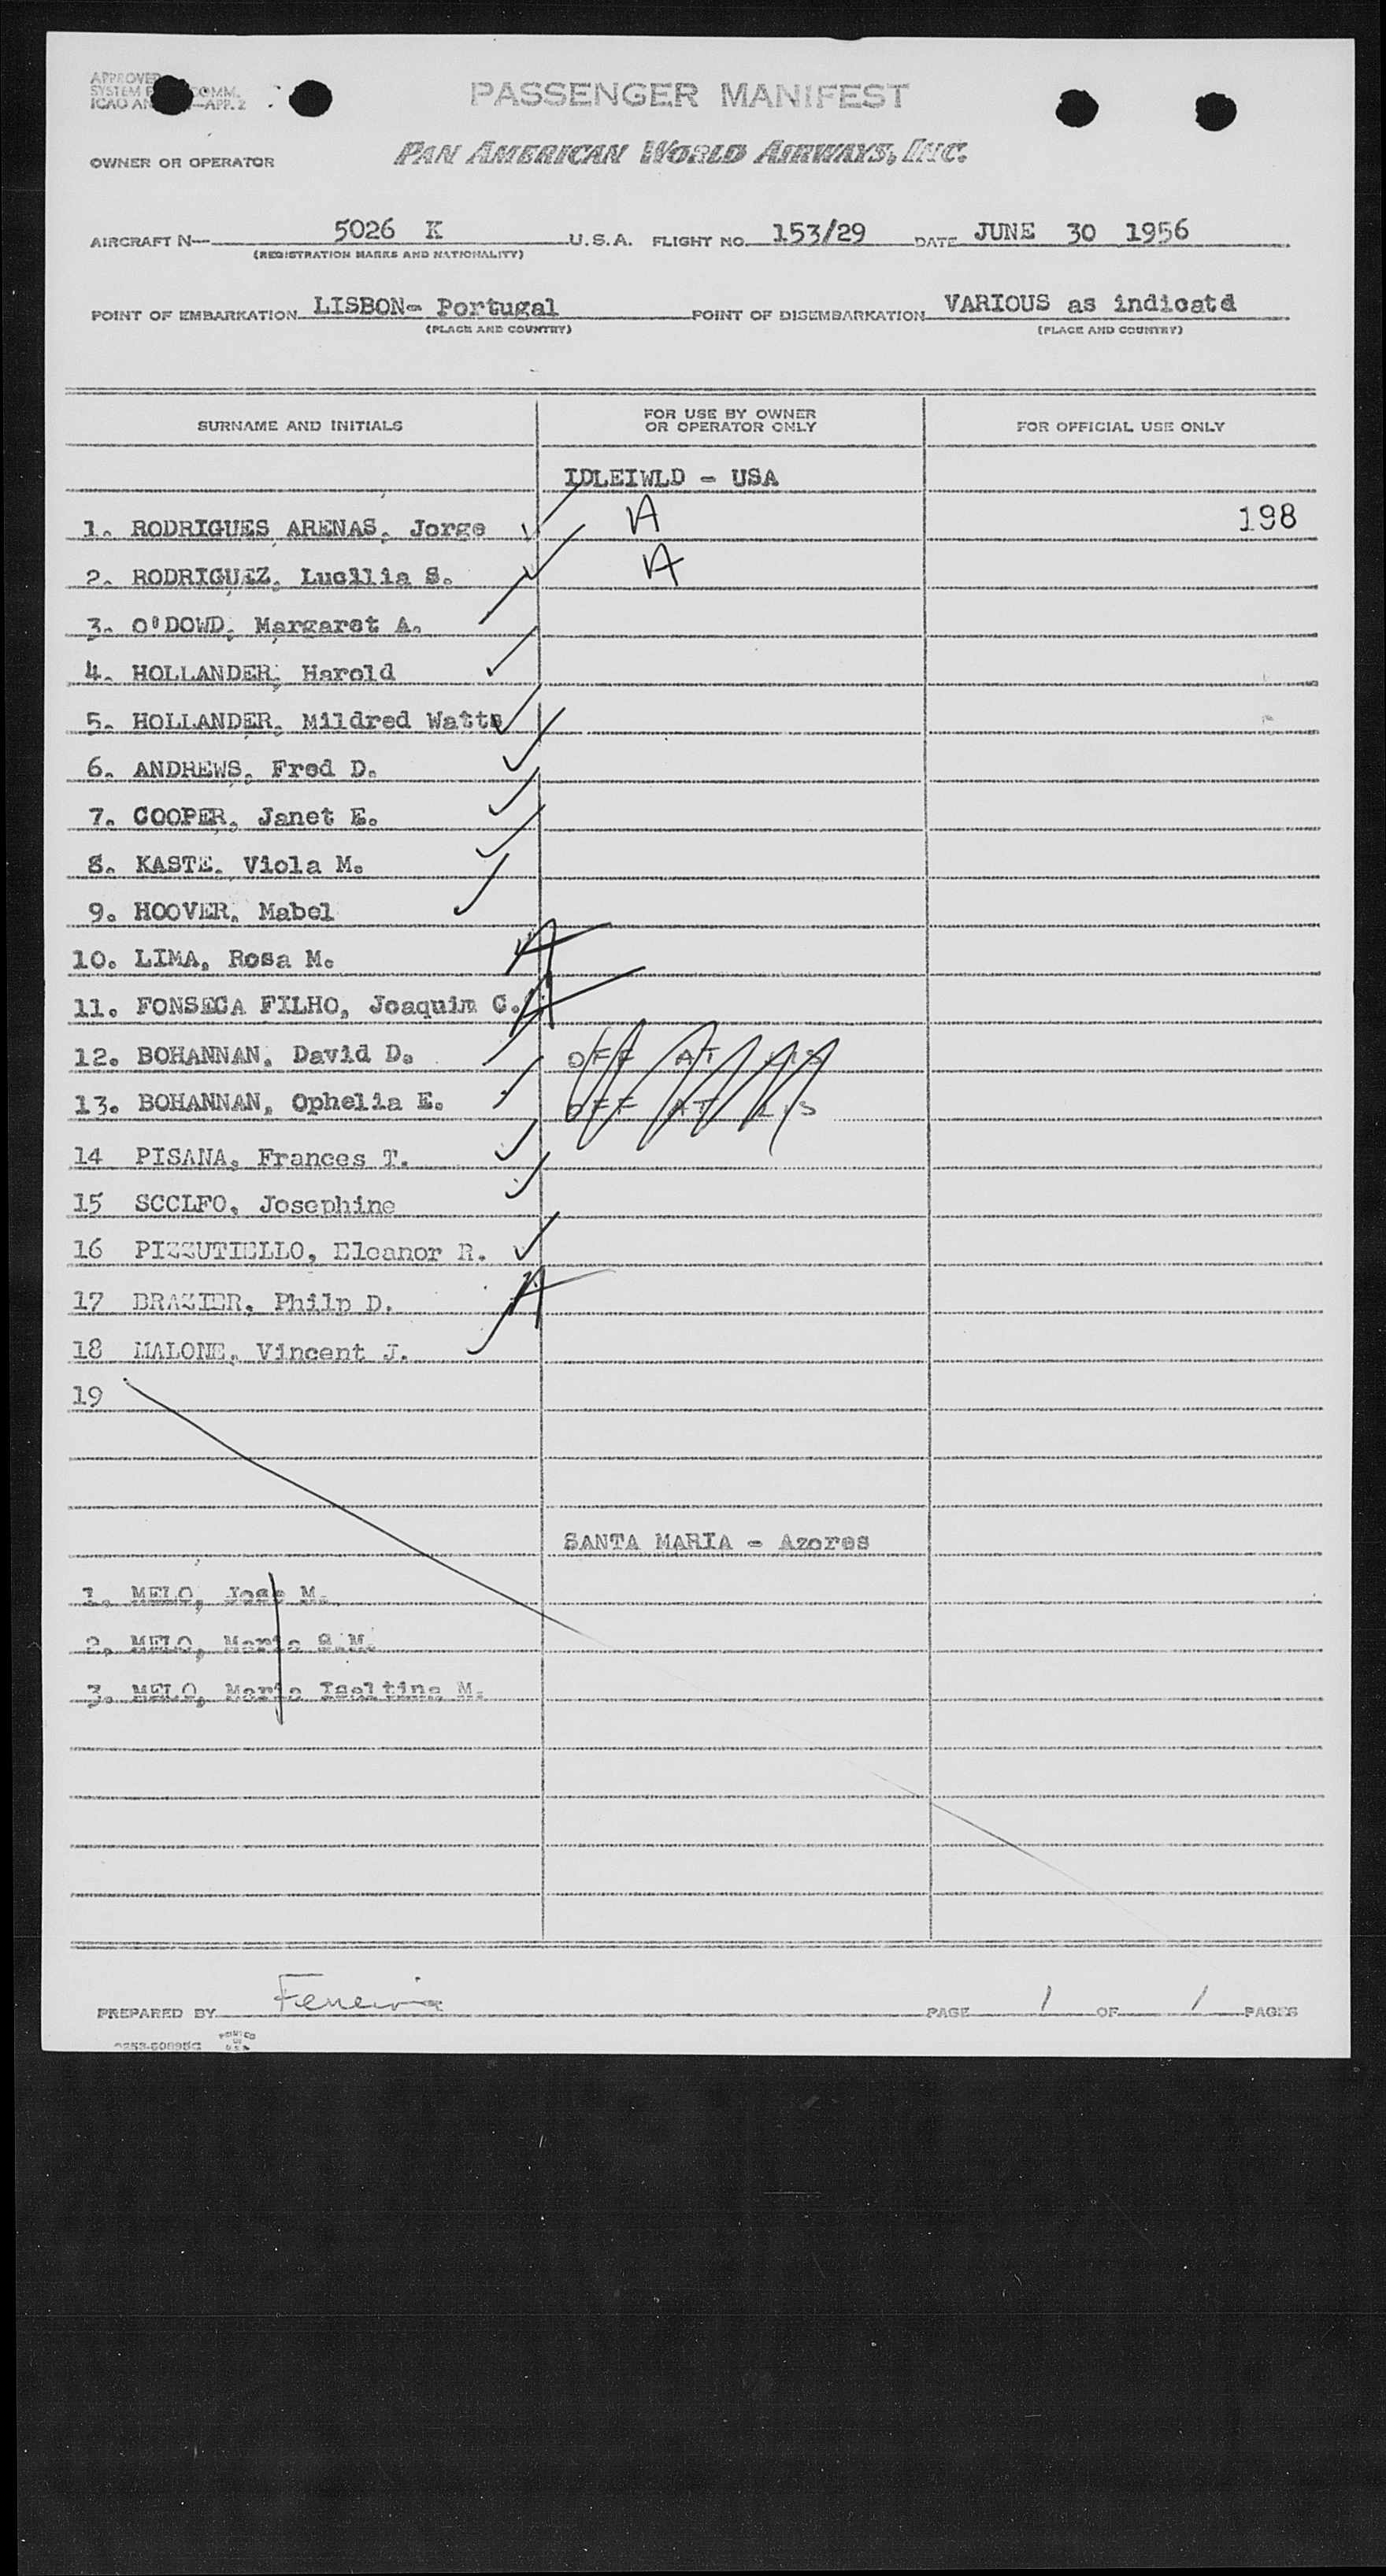 APPROVED
SYSTEM COMM.
ICAO AN —APP. 2
PASSENGER MANIFEST
OWNER OR OPERATOR PAN AMERICAN WORLD AIRWAYS, INC.
AIRCRAFT N— 5026 K U.S.A. FLIGHT NO. 153/29 DATE JUNE 30 1956
(REGISTRATION MARKS AND NATIONALITY)
POINT OF EMBARKATION LISBON- Portugal POINT OF DISEMBARKATION VARIOUS as indicatd
(PLACE AND COUNTRY) (PLACE AND COUNTRY)
SURNAME AND INITIALS FOR USE BY OWNER OR OPERATOR ONLY FOR OFFICIAL USE ONLY
IDLEIWLD - USA
1. RODRIGUES ARENAS, Jorge A 198
2. RODRIGUEZ, Lucilia S. A
3. O'DOWD, Margaret A.
4. HOLLANDER, Harold
5. HOLLANDER, Mildred Watts
6. ANDREWS, Fred D.
7. COOPER, Janet E.
8. KASTE, Viola M.
9. HOOVER, Mabel
10. LIMA, Rosa M. A
11. FONSECA FILHO, Joaquim C. A
12. BOHANNAN, David D. OFF AT LIS
13. BOHANNAN, Ophelia E. OFF AT LIS
14 PISANA, Frances T.
15 SCCLFO, Josephine
16 PIZZUTIELLO, Eleanor R.
17 BRAZIER, Philp D. A
18 MALONE, Vincent J.
19
SANTA MARIA - Azores
1. MELO, Jose M.
2. MELO, Maria S.M.
3. MELO, Maria Isaltina M.
PREPARED BY Ferreira PAGE 1 OF 1 PAGES